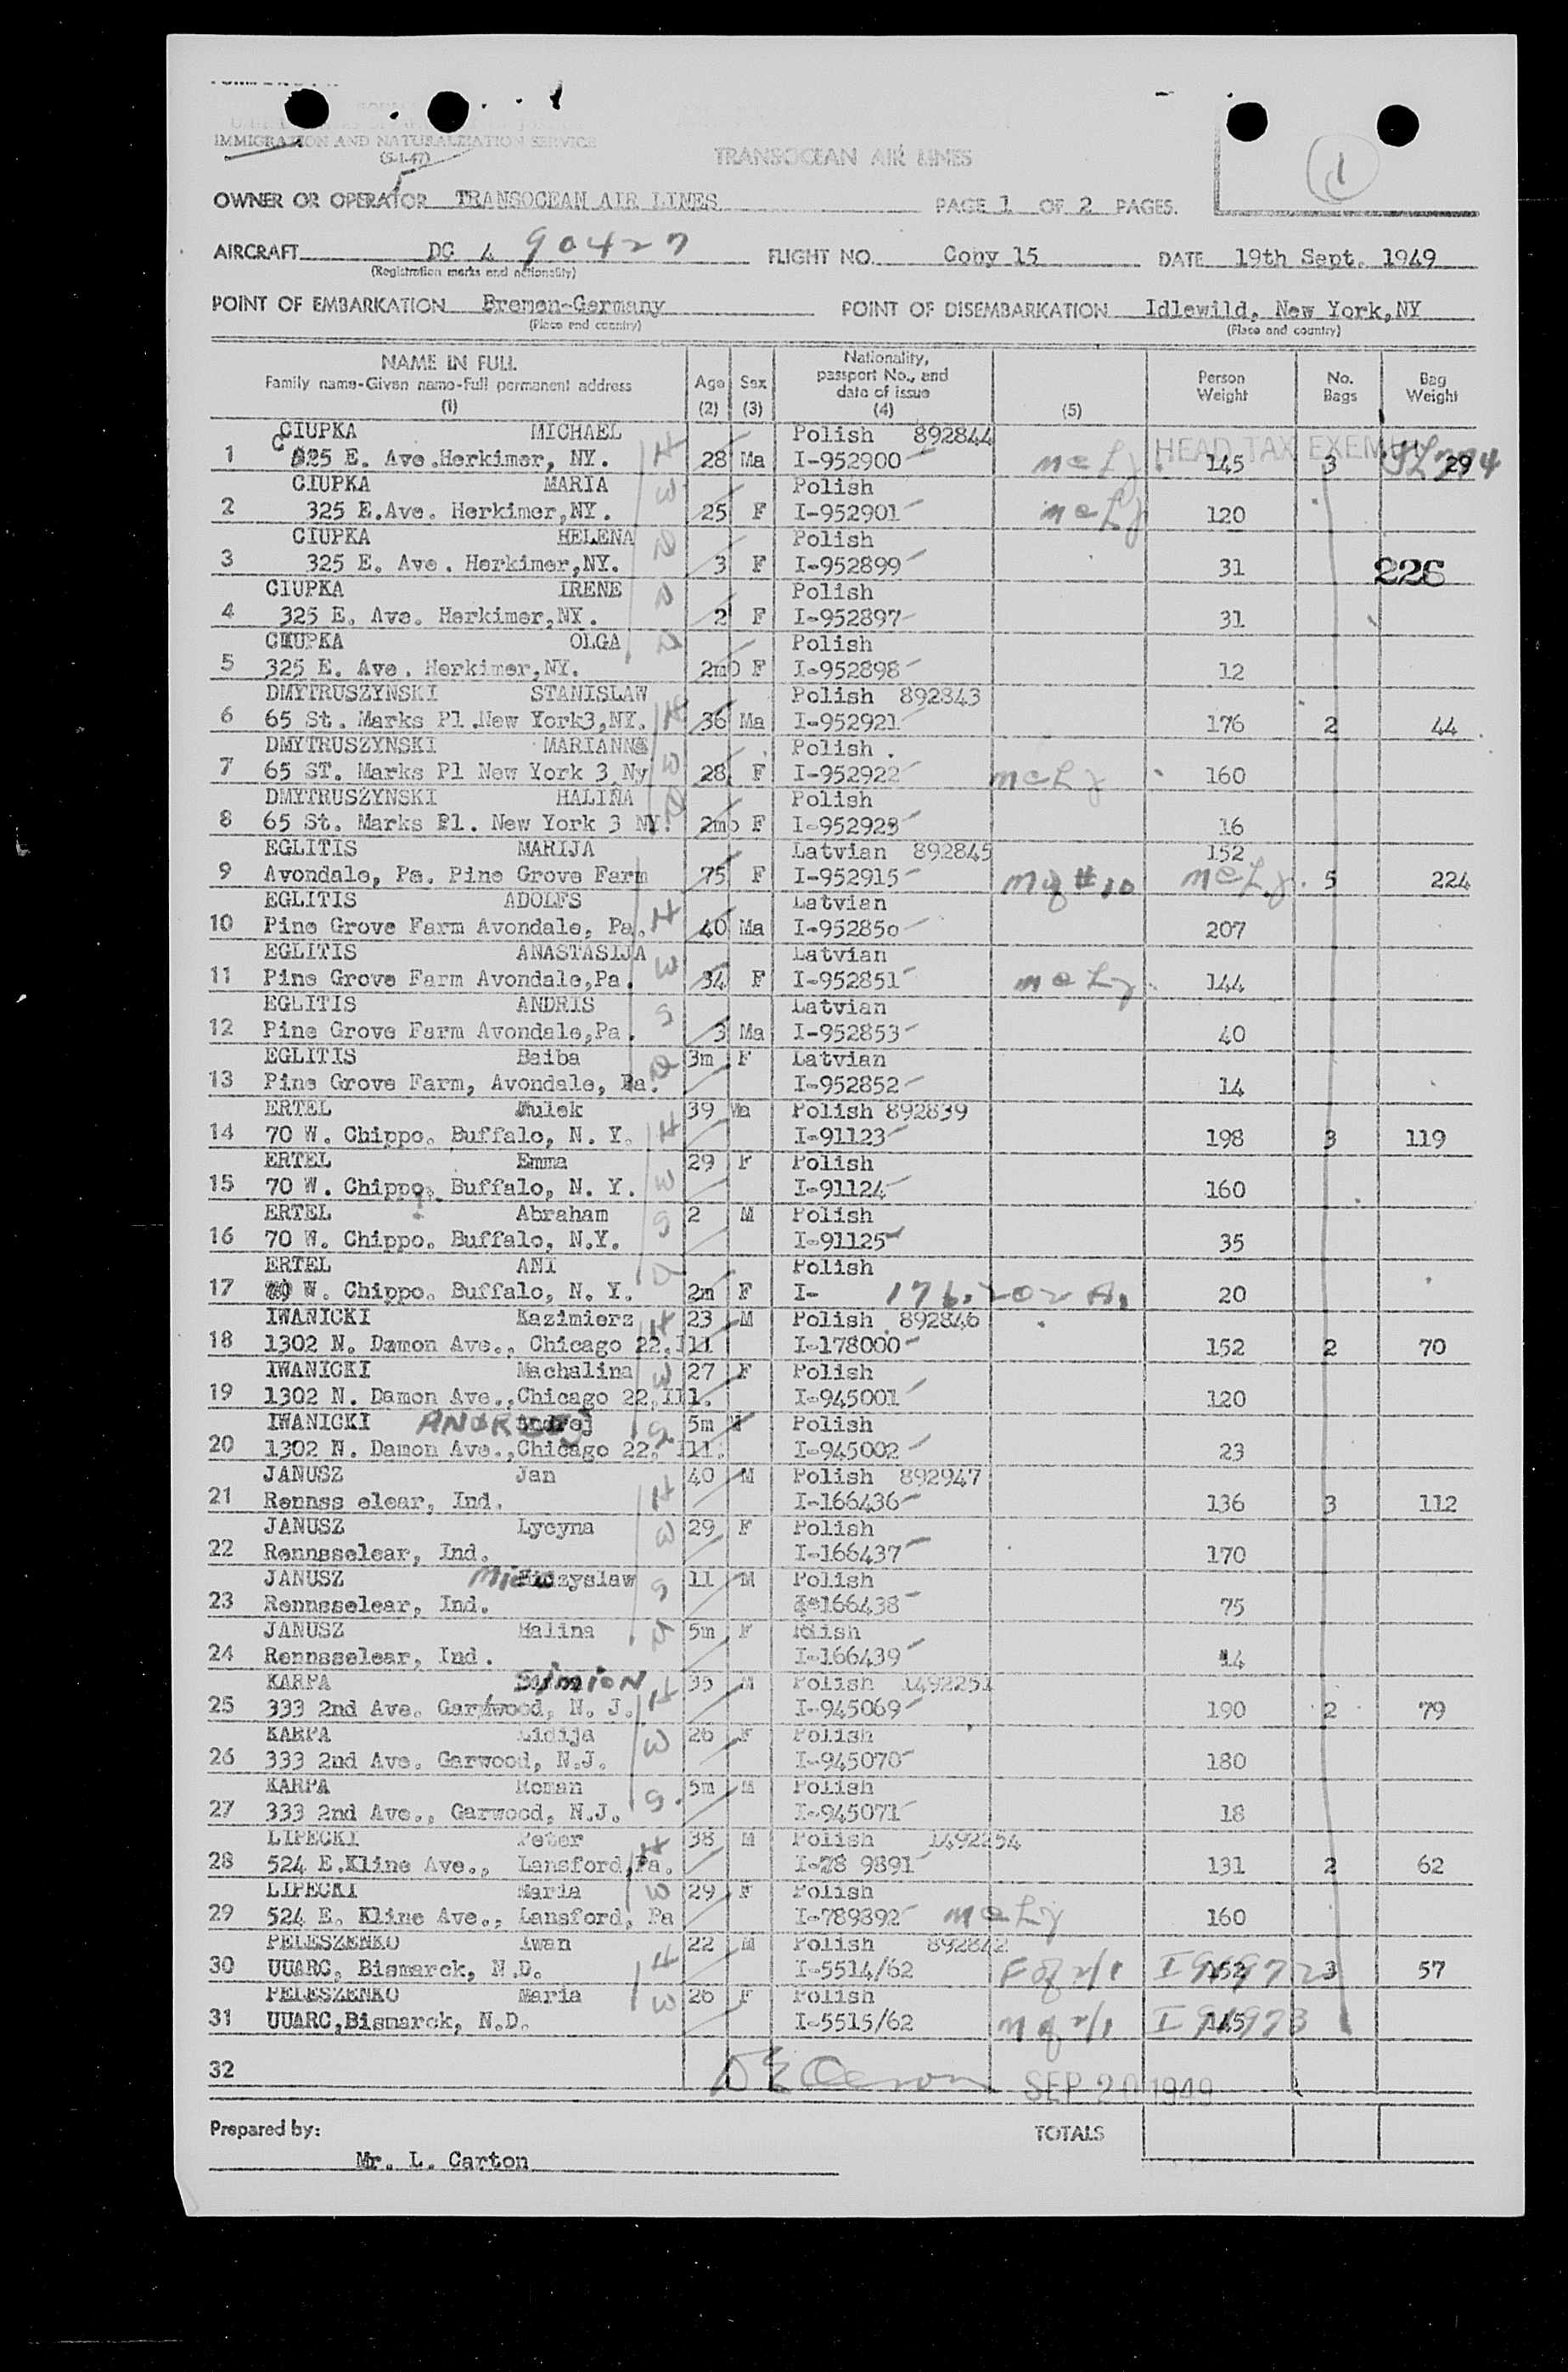 IMMIGRATION AND NATURALIZATION SERVICE
(5-1-47)
TRANSOCEAN AIR LINES
1
OWNER OR OPERATOR TRANSOCEAN AIR LINES PAGE 1 OF 2 PAGES.
AIRCRAFT DC 4 90427 FLIGHT NO. Cony 15 DATE 19th Sept. 1949
(Registration marks and nationality)
POINT OF EMBARKATION Bremen-Germany POINT OF DISEMBARKATION Idlewild, New York,NY
(Place and country) (Place and country)
NAME IN FULL
Family name-Given name-Full permanent address
(1)
Age
(2)
Sex
(3)
Nationality,
passport No., and
date of issue
(4)
(5)
Person
Weight
No.
Bags
Bag
Weight
CIUPKA MICHAEL Polish 892844 HEAD TAX EXEMPT
1 325 E. Ave.Herkimer, NY. H 28 Ma I-952900 145 3 29
CIUPKA MARIA Polish
2 325 E.Ave. Herkimer,NY. W 25 F I-952901 120
CIUPKA HELENA Polish
3 325 E. Ave. Herkimer,NY. D 3 F I-952899 31 226
CIUPKA IRENE Polish
4 325 E. Ave. Herkimer,NY. D 2 F I-952897 31
CIUPKA OLGA Polish
5 325 E. Ave. Herkimer,NY. D 2mo F I-952898 12
DMYTRUSZYNSKI STANISLAW Polish 892843
6 65 St. Marks Pl.New York3,NY. H 36 Ma I-952921 176 2 44
DMYTRUSZYNSKI MARIANNA Polish
7 65 ST. Marks Pl New York 3 Ny W 28 F I-952922 160
DMYTRUSZYNSKI HALINA Polish
8 65 St. Marks Pl. New York 3 NY. D 2mo F I-952923 16
EGLITIS MARIJA Latvian 892845 152
9 Avondale, Pa. Pine Grove Farm 75 F I-952915 5 224
EGLITIS ADOLFS Latvian
10 Pine Grove Farm Avondale, Pa. H 40 Ma I-952850 207
EGLITIS ANASTASIJA Latvian
11 Pine Grove Farm Avondale,Pa. W 34 F I-952851 144
EGLITIS ANDRIS Latvian
12 Pine Grove Farm Avondale,Pa. S 3 Ma I-952853 40
EGLITIS Baiba 3m F Latvian
13 Pine Grove Farm, Avondale, Pa. D I-952852 14
ERTEL Mulek 39 Ma Polish 892839
14 70 W. Chippo. Buffalo, N. Y. H I-91123 198 3 119
ERTEL Emma 29 F Polish
15 70 W. Chippo. Buffalo, N. Y. W I-91124 160
ERTEL Abraham 2 M Polish
16 70 W. Chippo. Buffalo, N.Y. S I-91125 35
ERTEL ANI Polish
17 70 W. Chippo. Buffalo, N. Y. D 2m F I- 176202 20
IWANICKI Kazimierz 23 M Polish 892846
18 1302 N. Damon Ave., Chicago 22.Ill H I-178000 152 2 70
IWANICKI Machalina 27 F Polish
19 1302 N. Damon Ave.,Chicago 22.Ill. W I-945001 120
IWANICKI 5m M Polish
20 1302 N. Damon Ave.,Chicago 22. Ill. S I-945002 23
JANUSZ Jan 40 M Polish 892947
21 Rennss elear, Ind. H I-166436 136 3 112
JANUSZ Lycyna 29 F Polish
22 Rennsselear, Ind. W I-166437 170
JANUSZ Miczyslaw 11 M Polish
23 Rennsselear, Ind. S I-166438 75
JANUSZ Halina 5m F Polish
24 Rennsselear, Ind. D I-166439 14
KARPA SIMION 35 M Polish 1492251
25 333 2nd Ave. Garwood, N. J. H I-945069 190 2 79
KARPA Lidija 26 F Polish
26 333 2nd Ave. Garwood, N.J. W I-945070 180
KARPA Roman 5m M Polish
27 333 2nd Ave., Garwood, N.J. S. I-945071 18
LIPECKI Peter 38 M Polish 1492254
28 524 E.Kline Ave., Lansford,Pa. H I-78 9891 131 2 62
LIPECKI Maria 29 F Polish
29 524 E. Kline Ave., Lansford, Pa W I-789892 160
PELESZENKO Iwan 22 M Polish 892842
30 UUARC, Bismarck, N.D. H I-5514/62 152 3 57
PELESZENKO Maria 26 F Polish
31 UUARC,Bismarck, N.D. W I-5515/62 145
32 SEP 20 1949
Prepared by: TOTALS
Mr. L. Carton